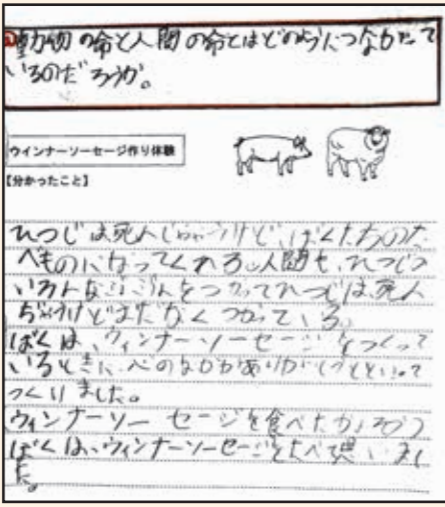 動物の命と人間の命とはどのようにつながって
いるのだろうか。
ウインナーソーセージ作り体験
【分かったこと】
ひつじは死んじゃうけど、ぼくたちのた
べものになってくれる。人間も、ひつじの
いろんなぶぶんをつかってひつじは死ん
ぢゃうけどむだなくつかっている。
ぼくは、ウィンナーソーセージをつくって
いるときに、心のなかがありがとうといって
つくりました。
ウィンナーソーセージを食べたから
ぼくは、ウィンナーソーセージをたべて思いまし
た。